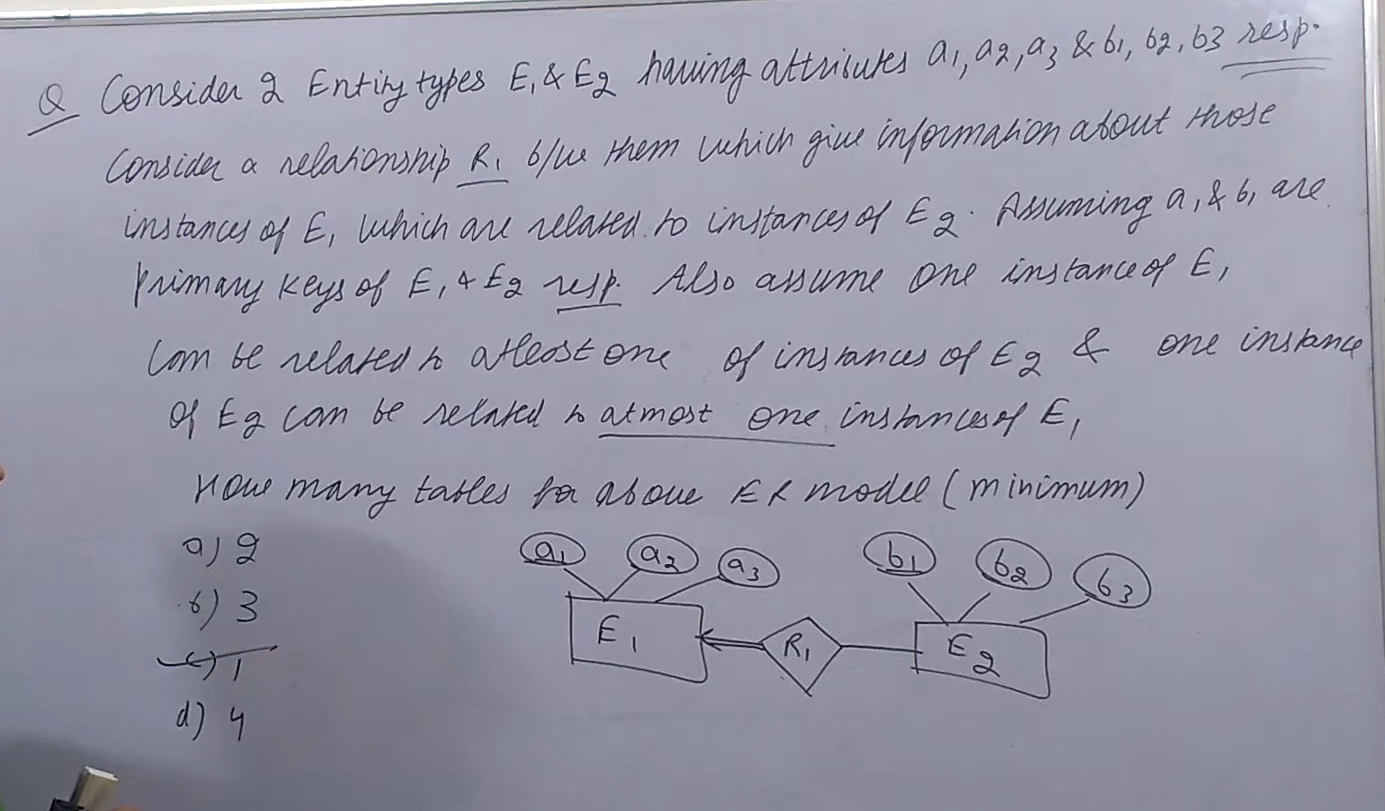 Q Consider 2 Entity types E1 & E2 having attributes a1, a2, a3 & b1, b2, b3 resp.
Consider a relationship R1 b/w them which give information about those
instances of E1 which are related to instances of E2. Assuming a1 & b1 are
Primary Keys of E1 & E2 resp. Also assume one instance of E1
Can be related to atleast one of instances of E2 & one instance
of E2 can be related to atmost one instances of E1
How many tables for above ER model (minimum)
a) 2
b) 3
c) 1
d) 4
a1 a2 a3 b1 b2 b3
E1 R1 E2